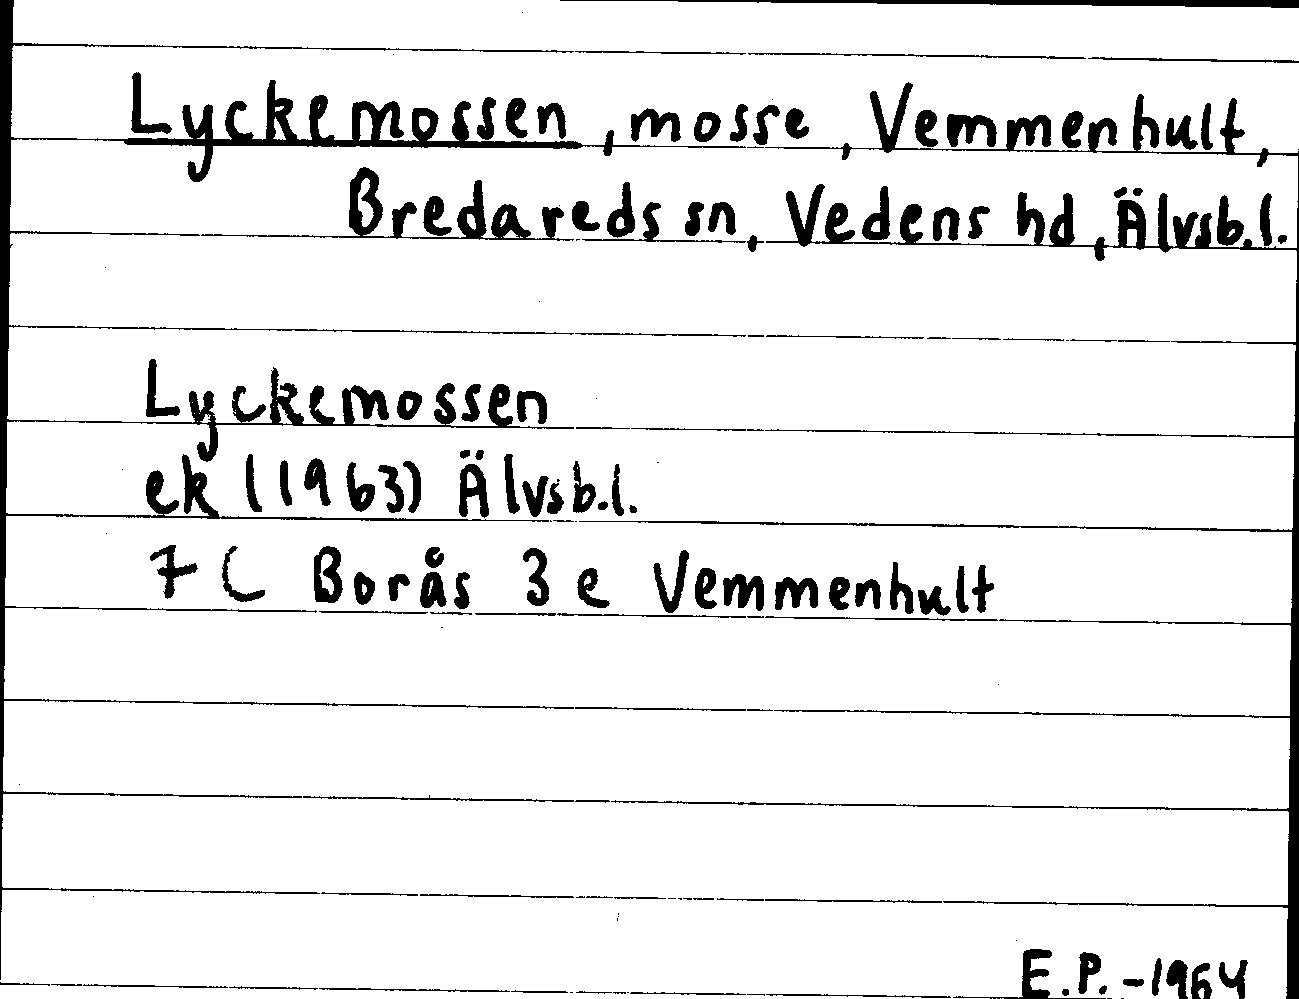 Lyckemossen, mosse, Vemmenhult,
Bredareds sn, Vedens hd, Älvsb.l.
Lyckemossen
ek (1963) Älvsb.l.
7 C Borås 3 e Vemmenhult
E.P. -1964